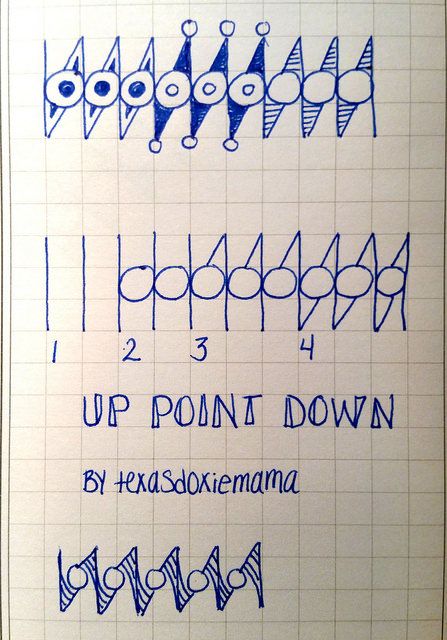 1 2 3 4
UP POINT DOWN
BY texasdoxiemama